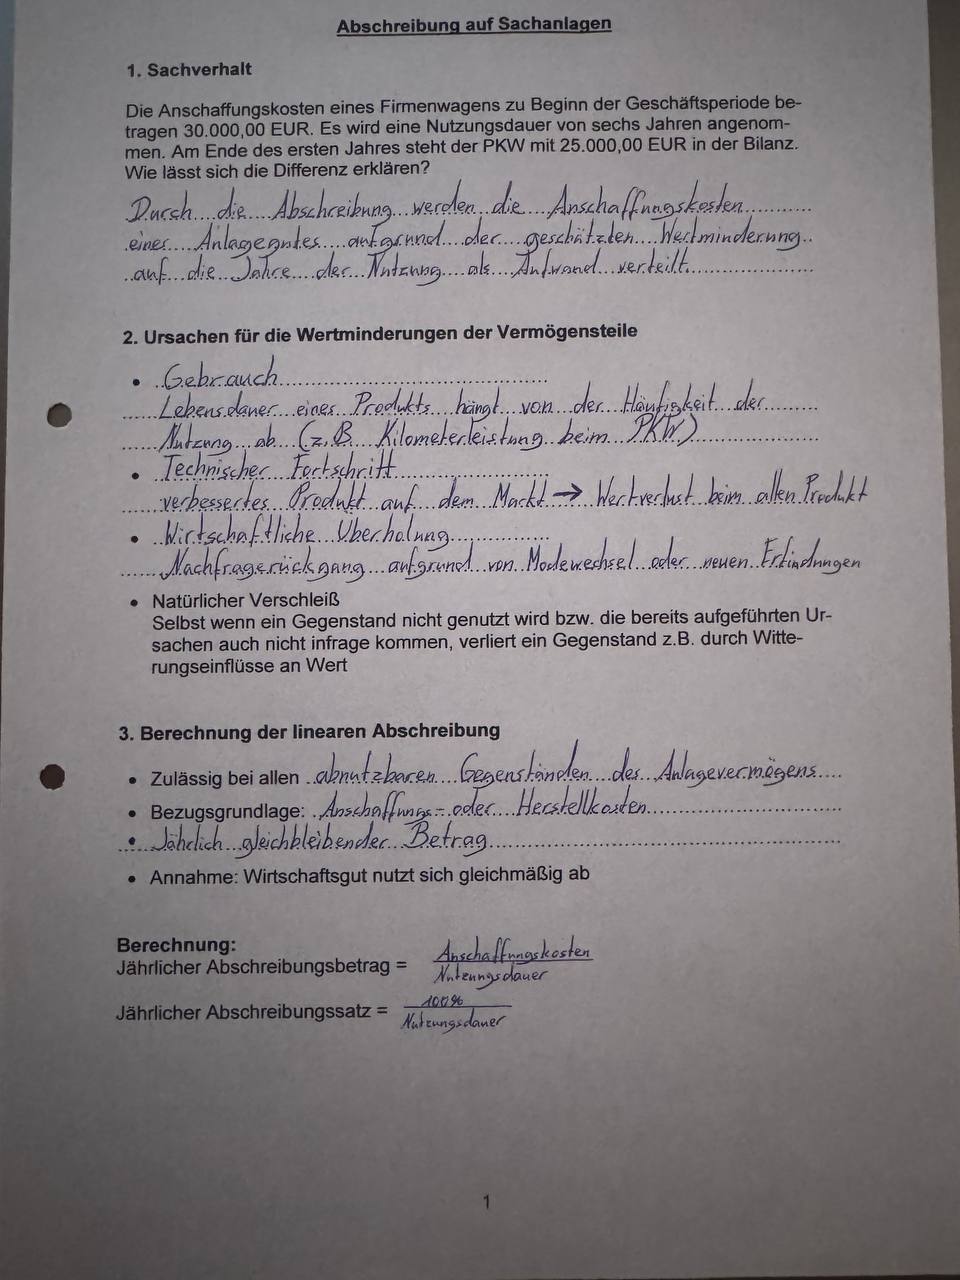 Abschreibung auf Sachanlagen
1. Sachverhalt
Die Anschaffungskosten eines Firmenwagens zu Beginn der Geschäftsperiode be-
tragen 30.000,00 EUR. Es wird eine Nutzungsdauer von sechs Jahren angenom-
men. Am Ende des ersten Jahres steht der PKW mit 25.000,00 EUR in der Bilanz.
Wie lässt sich die Differenz erklären?
Durch die Abschreibung werden die Anschaffungskosten
eines Anlagegutes aufgrund der geschätzten Wertminderung
auf die Jahre der Nutzung als Aufwand verteilt.
2. Ursachen für die Wertminderungen der Vermögensteile
• Gebrauch
Lebensdauer eines Produkts hängt von der Häufigkeit der
Nutzung ab (z.B. Kilometerleistung beim PKW)
• Technischer Fortschritt
verbessertes Produkt auf dem Markt → Wertverlust beim alten Produkt
• Wirtschaftliche Überholung
Nachfragerückgang aufgrund von Modewechsel oder neuen Erfindungen
• Natürlicher Verschleiß
Selbst wenn ein Gegenstand nicht genutzt wird bzw. die bereits aufgeführten Ur-
sachen auch nicht infrage kommen, verliert ein Gegenstand z.B. durch Witte-
rungseinflüsse an Wert
3. Berechnung der linearen Abschreibung
• Zulässig bei allen abnutzbaren Gegenständen des Anlagevermögens
• Bezugsgrundlage: Anschaffungs- oder Herstellkosten
• Jährlich gleichbleibender Betrag
• Annahme: Wirtschaftsgut nutzt sich gleichmäßig ab
Berechnung:
Jährlicher Abschreibungsbetrag = Anschaffungskosten
Nutzungsdauer
Jährlicher Abschreibungssatz = 100%
Nutzungsdauer
1